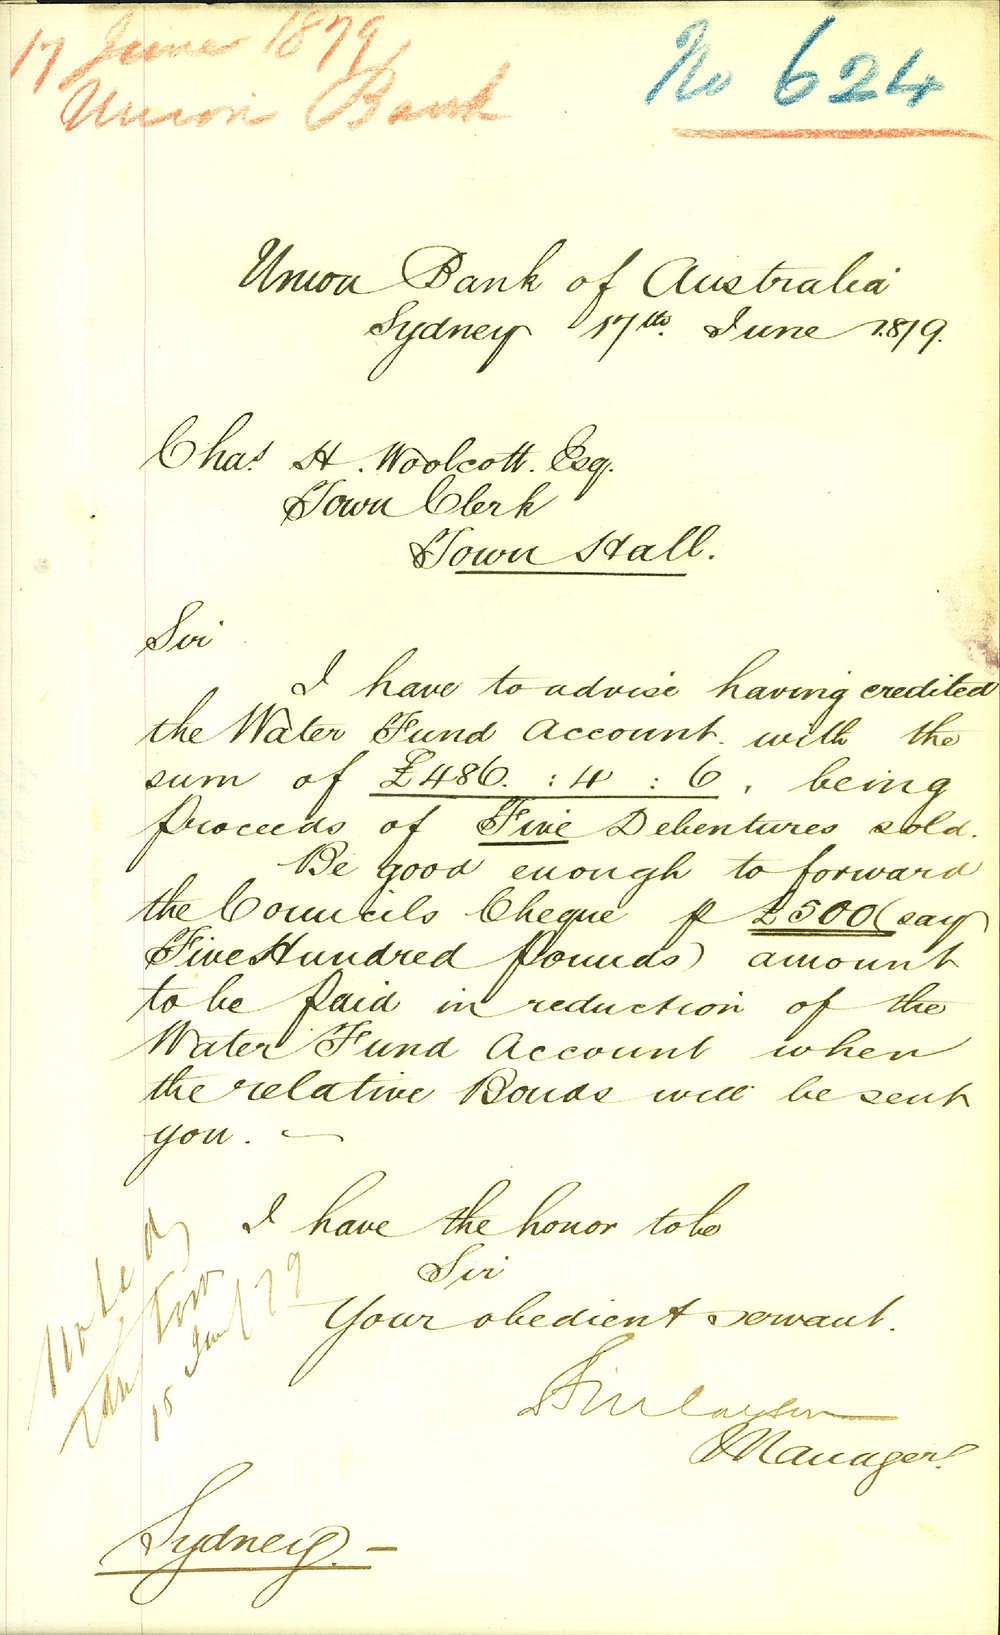 17 June 1879
Union Bank
No 624
Union Bank of Australia
Sydney 17th June 1879.
Chas. H. Woolcott. Esq.
Town Clerk
Town Hall.
Sir
I have to advise having credited
the Water Fund Account. with the
sum of £486. : 4 : 6, being
proceeds of Five Debentures sold.
Be good enough to forward
the Councils Cheque p £500 (say
Five Hundred pounds) amount
to be paid in reduction of the
Water Fund Account when
the relative Bonds will be sent
you. —
I have the honor to be
Sir
Your obedient servant.
Finlayson
Manager.
Noted
Sydney. —